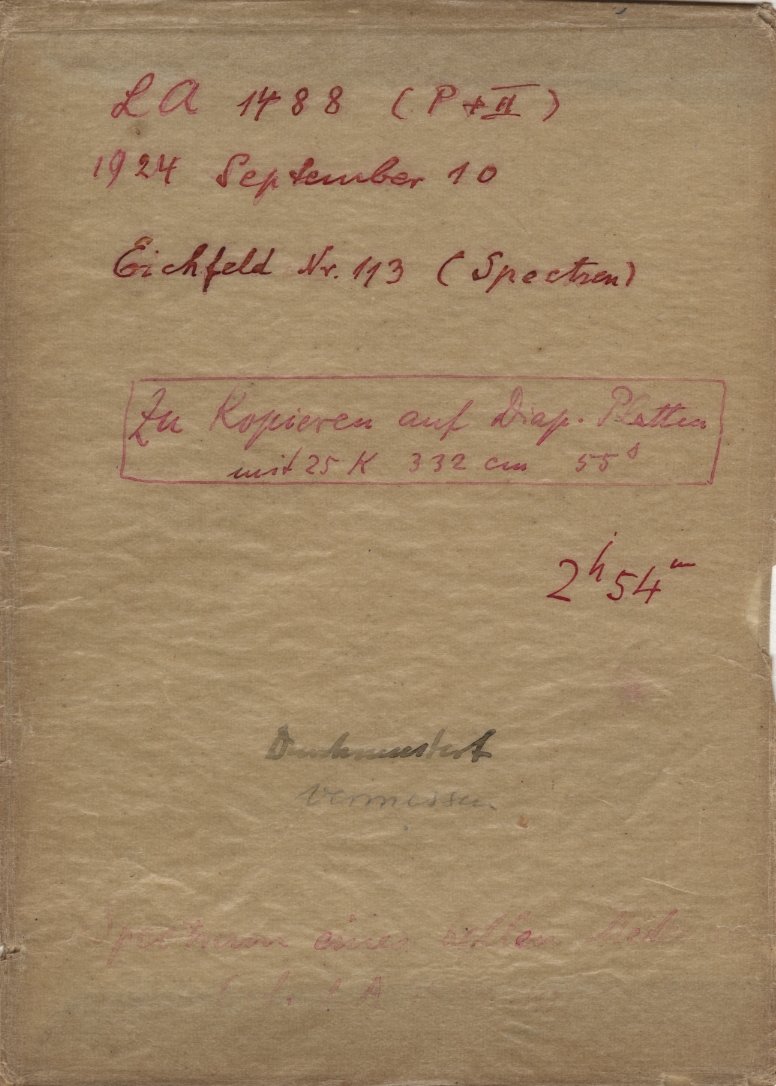 LA 1488 (P + II)
1924 September 10
Eichfeld Nr. 113 (Spectren)
Zu Kopieren auf Diap. Platten
mit 25 K 332 cm 55s
2h 54m
Durchmustert
Vermessen
Spectrum eines